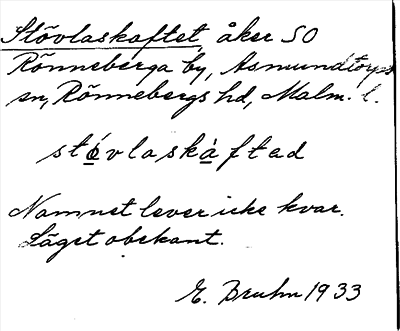 Stövlaskaftet, åker SO
Rönneberga by, Asmundtorps
sn, Rönnebergs hd, Malm. l.
stö́vlaskàftad
Namnet lever icke kvar.
Läget obekant.
E. Bruhn 1933